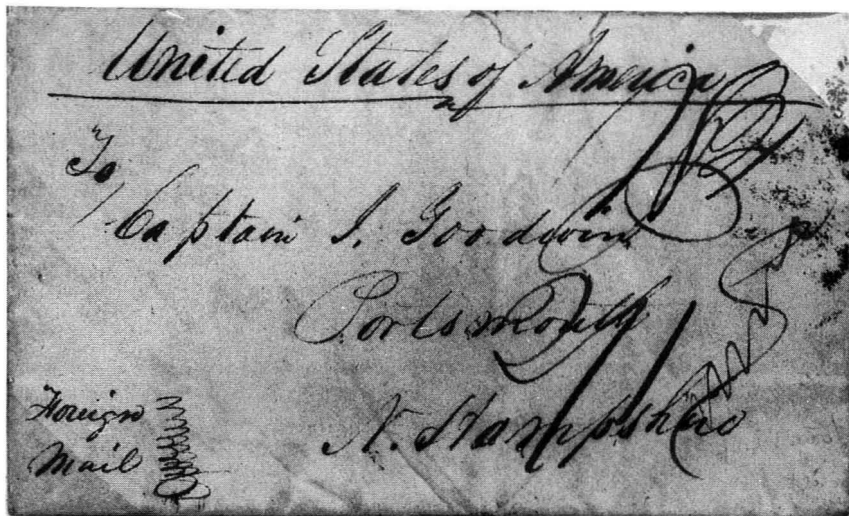 United States of America
To
Captain I. Goodwin
Portsmouth
N. Hampshire
Foreign
Mail